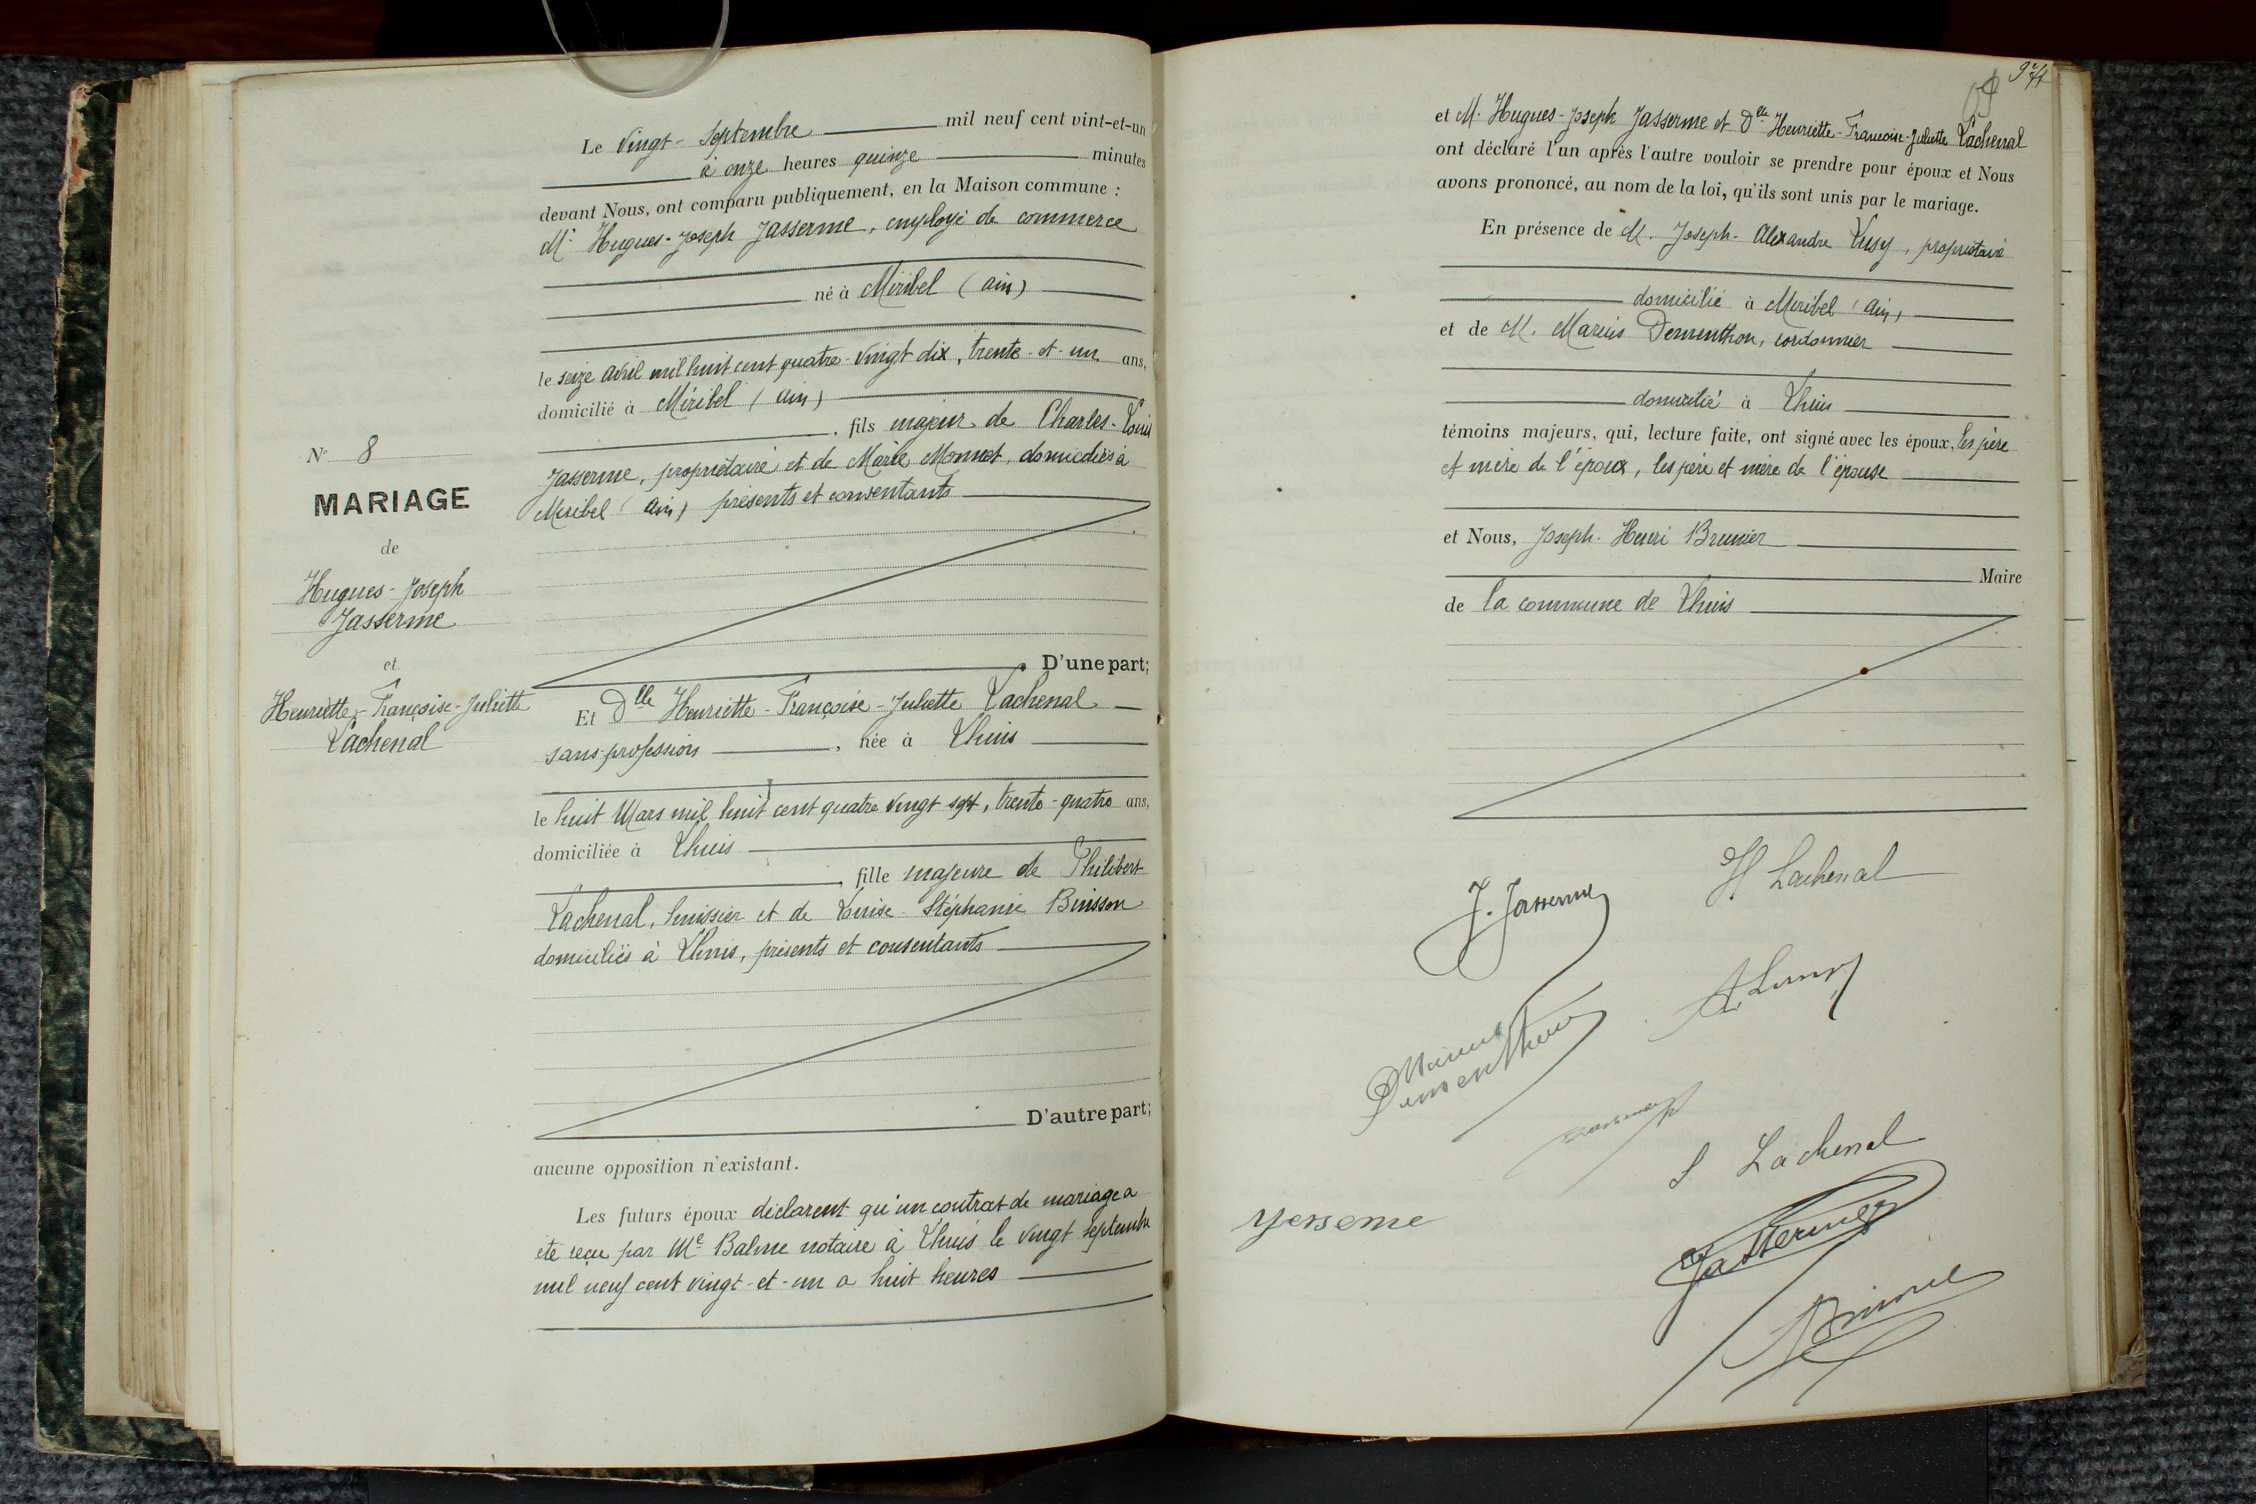 Le vingt-Septembre mil neuf cent vint-et-un
à onze heures quinze minutes
devant Nous, ont comparu publiquement, en la Maison commune :
Mr Hugues-Joseph Jasserme, employé de commerce
né à Miribel (ain)
le seize avril mil huit cent quatre-vingt dix, trente-et-un ans,
domicilié à Miribel (ain)
, fils majeur de Charles-Louis
Jasserme, propriétaire et de Marie Monnet, domiciliés à
Miribel (ain) présents et consentants
D'une part;
Et Dlle Henriette-Françoise-Juliette Lachenal
sans profession, née à Lhuis
le huit Mars mil huit cent quatre vingt sept, trente-quatre ans,
domiciliée à Lhuis
, fille majeure de Philibert
Lachenal, huissier et de Louise-Stéphanie Buisson
domiciliés à Lhuis, présents et consentants
D'autre part;
aucune opposition n'existant.
Les futurs époux déclarent qu'un contrat de mariage a
été reçu par Me Balme notaire à Lhuis le vingt septembre
mil neuf cent vingt-et-un a huit heures
N° 8
MARIAGE
de
Hugues-Joseph
Jasserme
et
Henriette-Françoise-Juliette
Lachenal
et M. Hugues-Joseph Jasserme et Dlle Henriette-Francoise-Juliette Lachenal
ont déclaré l'un après l'autre vouloir se prendre pour époux et Nous
avons prononcé, au nom de la loi, qu'ils sont unis par le mariage.
En présence de M. Joseph-Alexandre Lusy, propriétaire
domicilié à Miribel (ain)
et de M. Marius Dementhon, cordonnier
domicilié à Lhuis
témoins majeurs, qui, lecture faite, ont signé avec les époux, les père
et mère de l'époux, les père et mère de l'épouse
et Nous, Joseph-Henri Brunier
Maire
de la commune de Lhuis
J. Jasserme
H Lachenal
Dementhon
S Lachenal